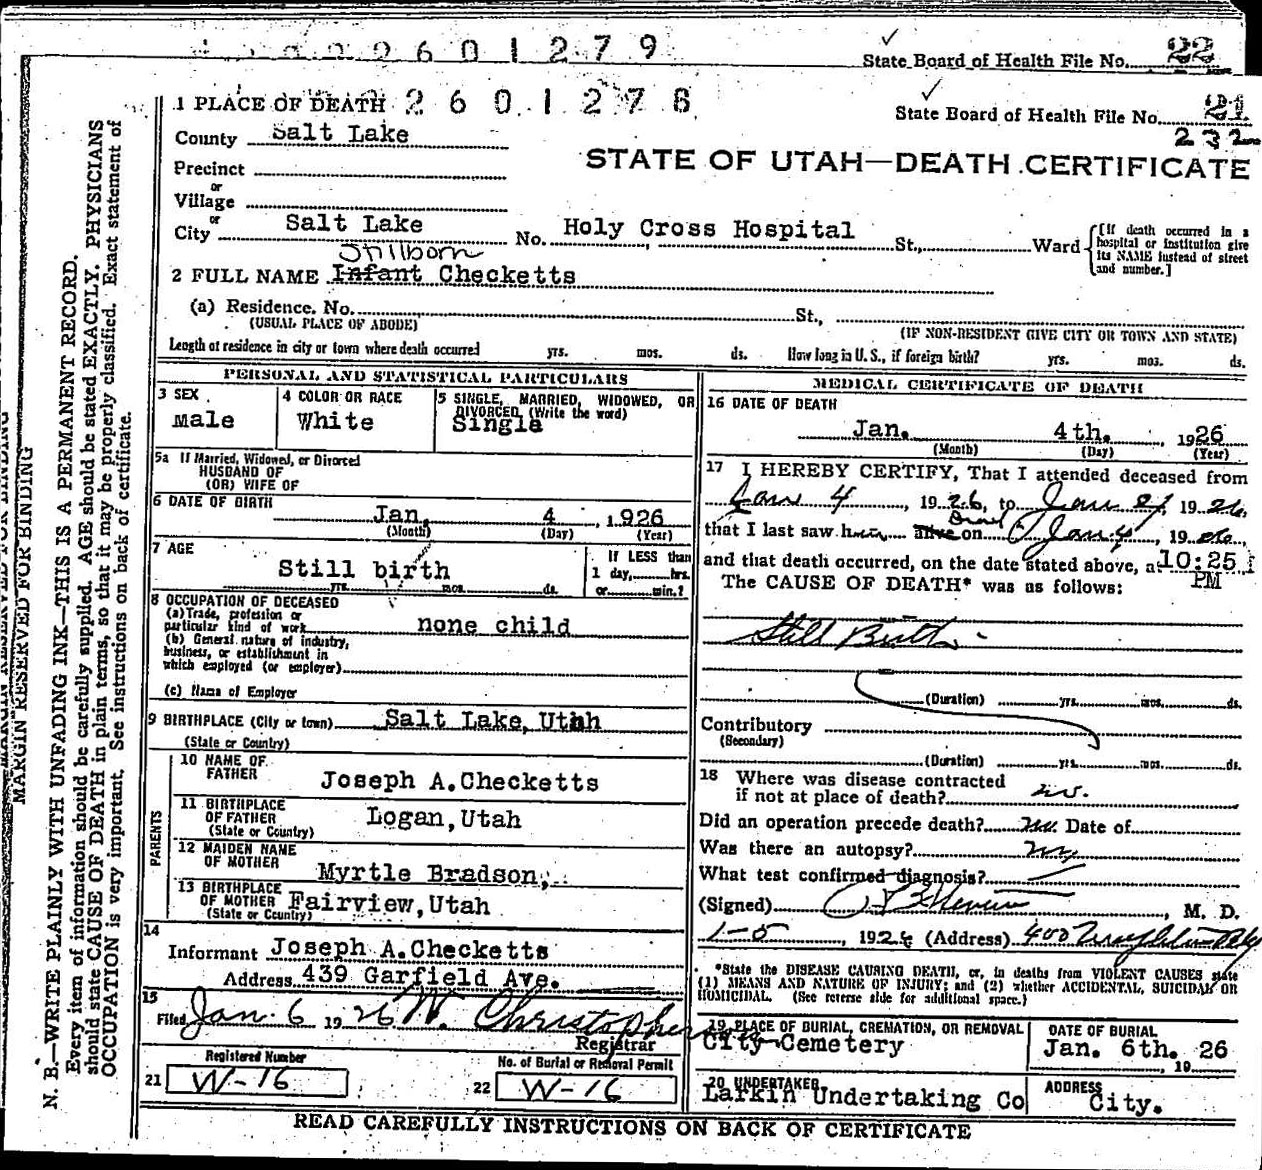 2601279
State Board of Health File No. 22
1 PLACE OF DEATH 2601278
State Board of Health File No. 21
232
County Salt Lake
STATE OF UTAH—DEATH CERTIFICATE
Precinct
or
Village
or
City Salt Lake No. Holy Cross Hospital St., Ward
[If death occurred in a hospital or institution give its NAME instead of street and number.]
Stillborn
2 FULL NAME Infant Checketts
(a) Residence. No. St.,
(USUAL PLACE OF ABODE) (IF NON-RESIDENT GIVE CITY OR TOWN AND STATE)
Length of residence in city or town where death occurred yrs. mos. ds. How long in U. S., if foreign birth? yrs. mos. ds.
PERSONAL AND STATISTICAL PARTICULARS
3 SEX
Male
4 COLOR OR RACE
White
5 SINGLE, MARRIED, WIDOWED, OR
DIVORCED (Write the word)
Single
5a If Married, Widowed, or Divorced
HUSBAND OF
(OR) WIFE OF
6 DATE OF BIRTH
Jan. 4, 1926
(Month) (Day) (Year)
7 AGE
Still birth
yrs. mos. ds.
If LESS than
1 day, hrs.
or min.?
8 OCCUPATION OF DECEASED
(a) Trade, profession or
particular kind of work none child
(b) General nature of industry,
business, or establishment in
which employed (or employer)
(c) Name of Employer
9 BIRTHPLACE (City or town) Salt Lake, Utah
(State or Country)
PARENTS
10 NAME OF
FATHER Joseph A. Checketts
11 BIRTHPLACE
OF FATHER Logan, Utah
(State or Country)
12 MAIDEN NAME
OF MOTHER Myrtle Bradson,
13 BIRTHPLACE
OF MOTHER Fairview, Utah
(State or Country)
14
Informant Joseph A. Checketts
Address 439 Garfield Ave.
15
Filed Jan. 6 1926 W. Christopherson
Registrar
Registered Number
21 W-16
No. of Burial or Removal Permit
22 W-16
MEDICAL CERTIFICATE OF DEATH
16 DATE OF DEATH
Jan. 4th., 1926
(Month) (Day) (Year)
17 I HEREBY CERTIFY, That I attended deceased from
Jan 4, 1926, to Jan 4, 1926,
Dead
that I last saw him alive on Jan 4, 1926,
and that death occurred, on the date stated above, at 10:25
PM
The CAUSE OF DEATH* was as follows:
Still Birth
(Duration) yrs. mos. ds.
Contributory
(Secondary)
(Duration) yrs. mos. ds.
18 Where was disease contracted
if not at place of death? no.
Did an operation precede death? no. Date of
Was there an autopsy? no
What test confirmed diagnosis?
(Signed) , M. D.
1-5, 1926 (Address) 400
*State the DISEASE CAUSING DEATH, or, in deaths from VIOLENT CAUSES state
(1) MEANS AND NATURE OF INJURY; and (2) whether ACCIDENTAL, SUICIDAL OR
HOMICIDAL. (See reverse side for additional space.)
19 PLACE OF BURIAL, CREMATION, OR REMOVAL
City Cemetery
DATE OF BURIAL
Jan. 6th. 26
, 19
20 UNDERTAKER
Larkin Undertaking Co
ADDRESS
City.
READ CAREFULLY INSTRUCTIONS ON BACK OF CERTIFICATE
MARGIN RESERVED FOR BINDING
MARGIN RESERVED FOR BINDING
N. B.—WRITE PLAINLY WITH UNFADING INK—THIS IS A PERMANENT RECORD.
Every item of information should be carefully supplied. AGE should be stated EXACTLY. PHYSICIANS
should state CAUSE OF DEATH in plain terms, so that it may be properly classified. Exact statement of
OCCUPATION is very important. See instructions on back of certificate.